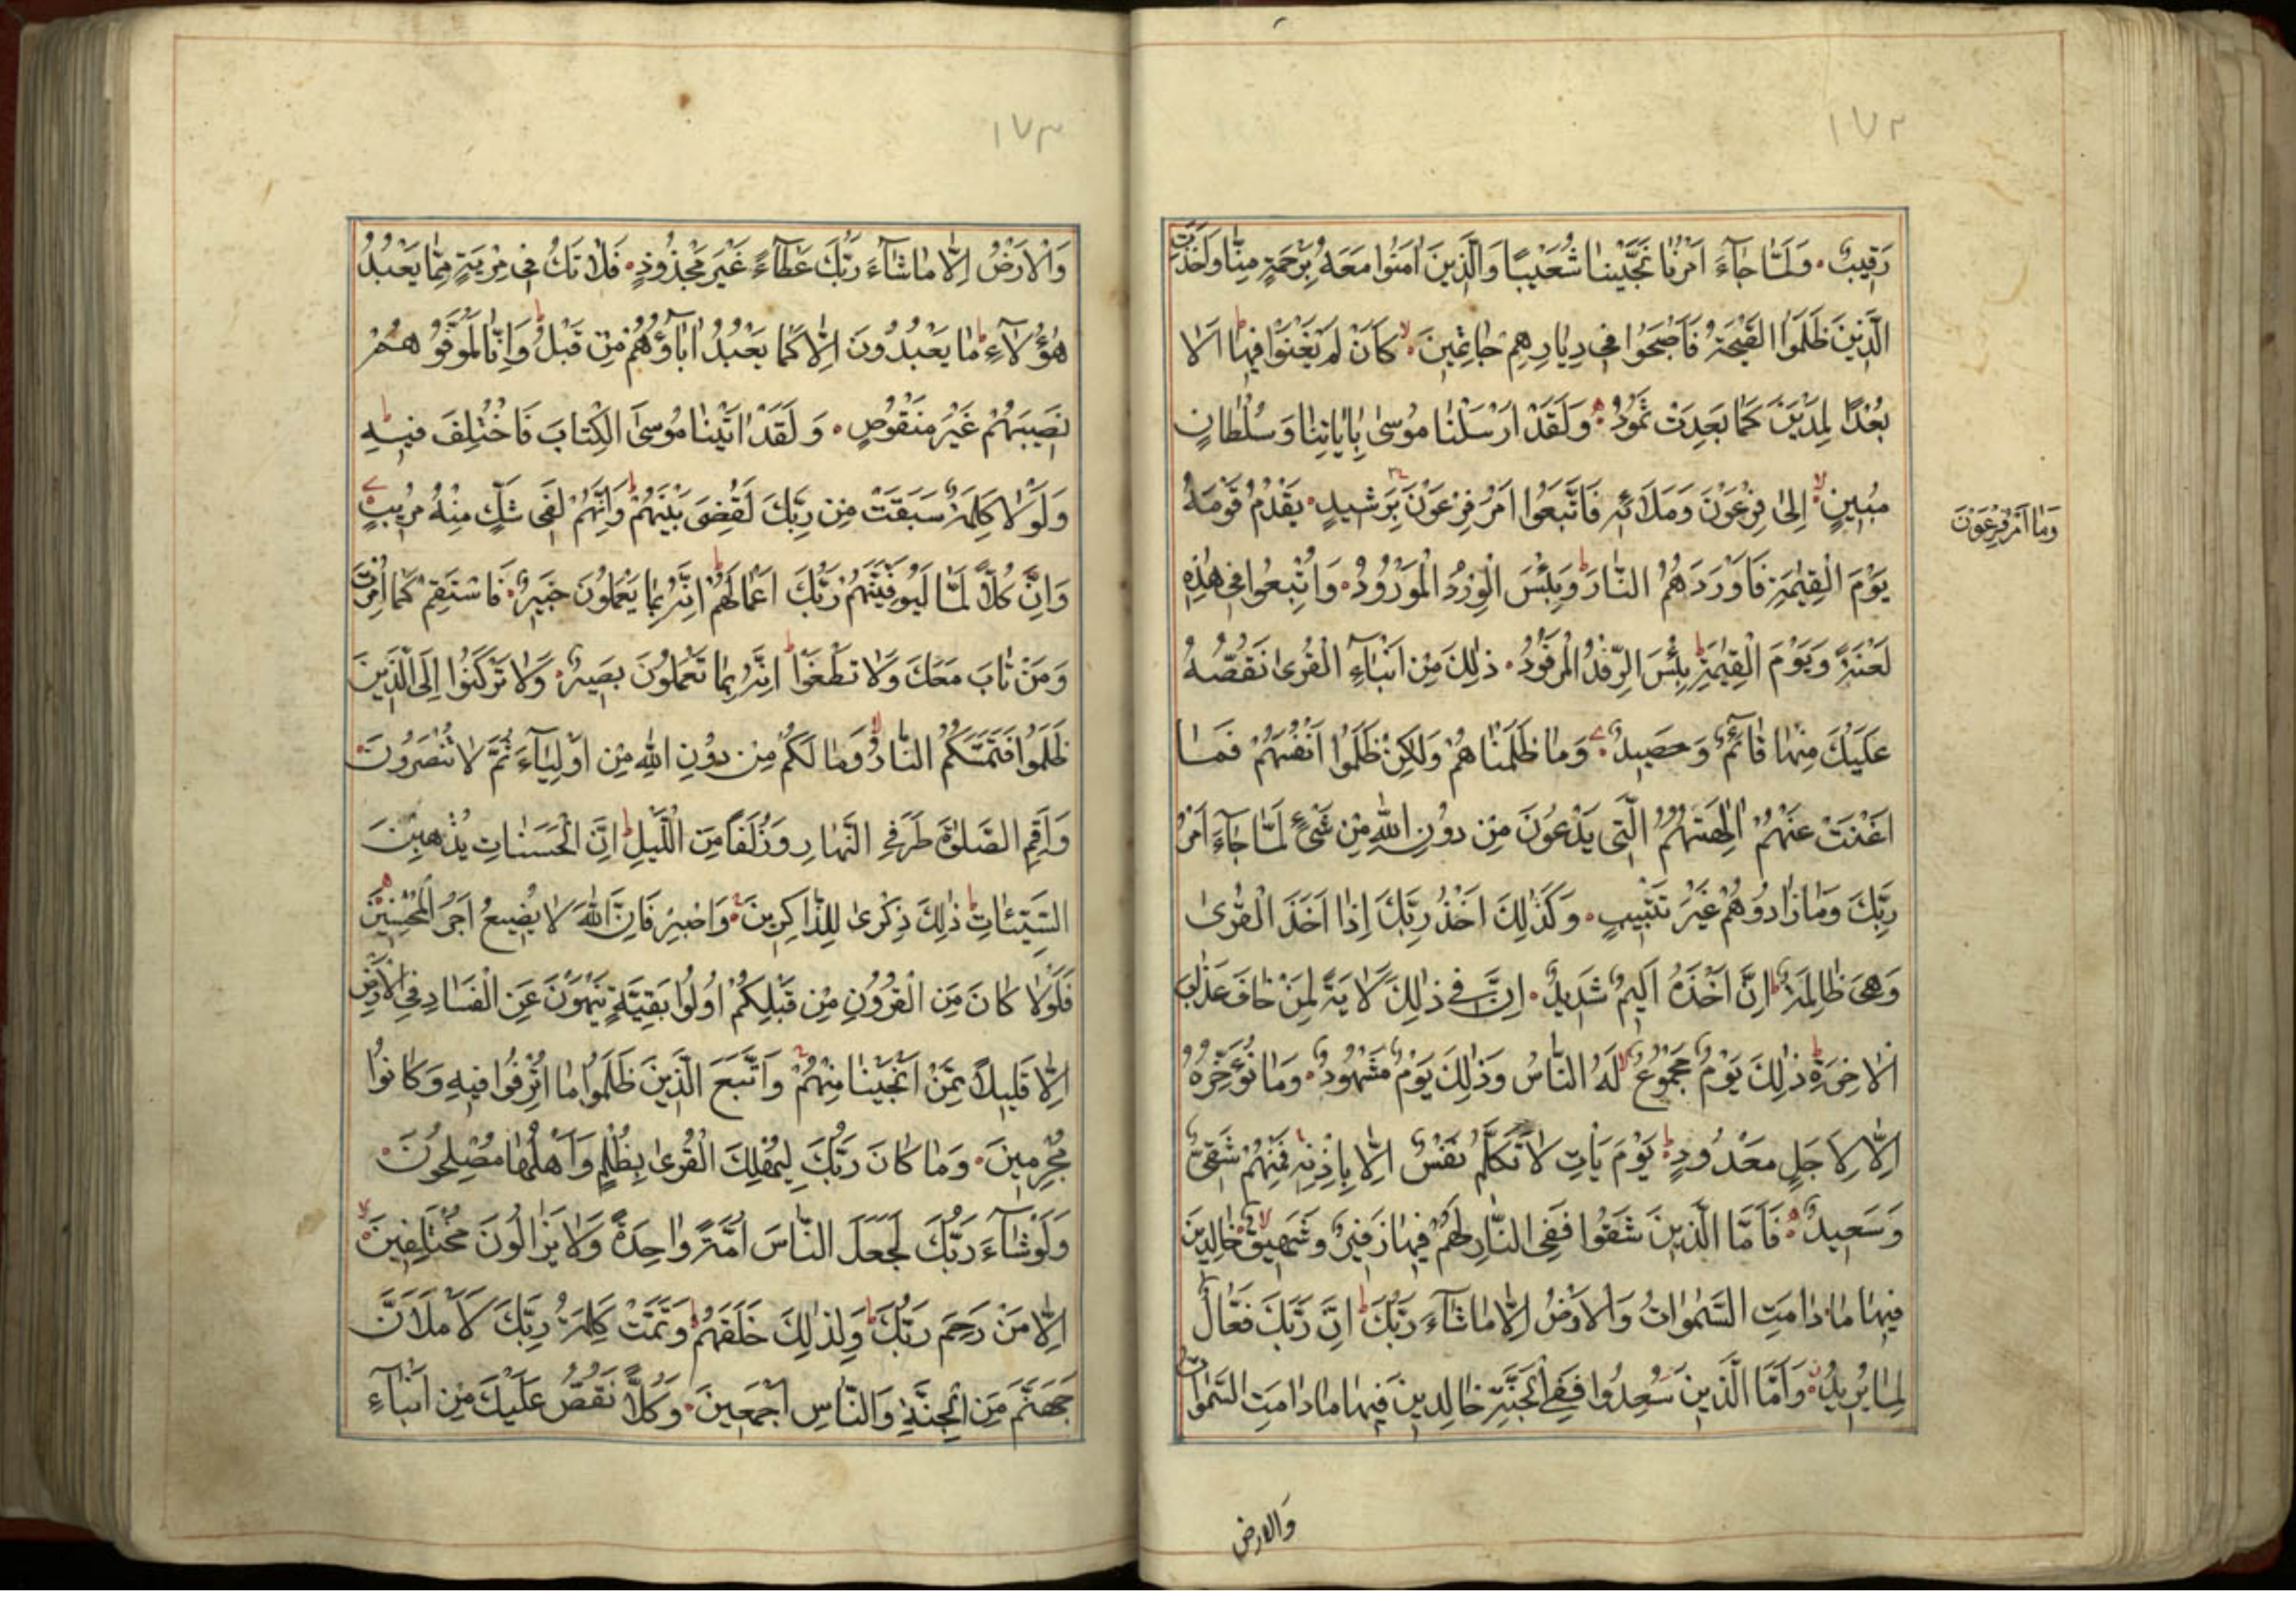 ١٧٢
رَقِيبٌ وَلَمَّا جَآءَ اَمْرُنَا نَجَّيْنَا شُعَيْبًا وَالَّذِينَ اٰمَنُوا مَعَهُ بِرَحْمَةٍ مِنَّا وَاَخَذَتِ
الَّذِينَ ظَلَمُوا الصَّيْحَةُ فَاَصْبَحُوا فِي دِيَارِهِمْ جَاثِمِينَ كَاَنْ لَمْ يَغْنَوْا فِيهَا اَلَا
بُعْدًا لِمَدْيَنَ كَمَا بَعِدَتْ ثَمُودُ وَلَقَدْ اَرْسَلْنَا مُوسٰى بِاٰيَاتِنَا وَسُلْطَانٍ
مُبِينٍ اِلٰى فِرْعَوْنَ وَمَلَائِهِ فَاتَّبَعُوا اَمْرَ فِرْعَوْنَ بِرَشِيدٍ يَقْدُمُ قَوْمَهُ
وَمَا اَمْرُ فِرْعَوْنَ
يَوْمَ الْقِيٰمَةِ فَاَوْرَدَهُمُ النَّارَ وَبِئْسَ الْوِرْدُ الْمَوْرُودُ وَاُتْبِعُوا فِي هٰذِهِ
لَعْنَةً وَيَوْمَ الْقِيٰمَةِ بِئْسَ الرِّفْدُ الْمَرْفُودُ ذٰلِكَ مِنْ اَنْبَآءِ الْقُرٰى نَقُصُّهُ
عَلَيْكَ مِنْهَا قَآئِمٌ وَحَصِيدٌ وَمَا ظَلَمْنَاهُمْ وَلٰكِنْ ظَلَمُوا اَنْفُسَهُمْ فَمَا
اَغْنَتْ عَنْهُمْ اٰلِهَتُهُمُ الَّتِي يَدْعُونَ مِنْ دُونِ اللّٰهِ مِنْ شَيْءٍ لَمَّا جَآءَ اَمْرُ
رَبِّكَ وَمَا زَادُوهُمْ غَيْرَ تَتْبِيبٍ وَكَذٰلِكَ اَخْذُ رَبِّكَ اِذَا اَخَذَ الْقُرٰى
وَهِيَ ظَالِمَةٌ اِنَّ اَخْذَهُ اَلِيمٌ شَدِيدٌ اِنَّ فِي ذٰلِكَ لَاٰيَةً لِمَنْ خَافَ عَذَابَ
الْاٰخِرَةِ ذٰلِكَ يَوْمٌ مَجْمُوعٌ لَهُ النَّاسُ وَذٰلِكَ يَوْمٌ مَشْهُودٌ وَمَا نُؤَخِّرُهُ
اِلَّا لِاَجَلٍ مَعْدُودٍ يَوْمَ يَاْتِ لَا تَكَلَّمُ نَفْسٌ اِلَّا بِاِذْنِهِ فَمِنْهُمْ شَقِيٌّ
وَسَعِيدٌ فَاَمَّا الَّذِينَ شَقُوا فَفِي النَّارِ لَهُمْ فِيهَا زَفِيرٌ وَشَهِيقٌ خَالِدِينَ
فِيهَا مَا دَامَتِ السَّمٰوَاتُ وَالْاَرْضُ اِلَّا مَا شَآءَ رَبُّكَ اِنَّ رَبَّكَ فَعَّالٌ
لِمَا يُرِيدُ وَاَمَّا الَّذِينَ سُعِدُوا فَفِي الْجَنَّةِ خَالِدِينَ فِيهَا مَا دَامَتِ السَّمٰوَاتُ
وَالارض
١٧٣
وَالْاَرْضُ اِلَّا مَا شَآءَ رَبُّكَ عَطَآءً غَيْرَ مَجْذُوذٍ فَلَا تَكُ فِي مِرْيَةٍ مِمَّا يَعْبُدُ
هٰؤُلَآءِ مَا يَعْبُدُونَ اِلَّا كَمَا يَعْبُدُ اٰبَآؤُهُمْ مِنْ قَبْلُ وَاِنَّا لَمُوَفُّوهُمْ
نَصِيبَهُمْ غَيْرَ مَنْقُوصٍ وَلَقَدْ اٰتَيْنَا مُوسَى الْكِتَابَ فَاخْتُلِفَ فِيهِ
وَلَوْلَا كَلِمَةٌ سَبَقَتْ مِنْ رَبِّكَ لَقُضِيَ بَيْنَهُمْ وَاِنَّهُمْ لَفِي شَكٍّ مِنْهُ مُرِيبٍ
وَاِنَّ كُلًّا لَمَّا لَيُوَفِّيَنَّهُمْ رَبُّكَ اَعْمَالَهُمْ اِنَّهُ بِمَا يَعْمَلُونَ خَبِيرٌ فَاسْتَقِمْ كَمَا اُمِرْتَ
وَمَنْ تَابَ مَعَكَ وَلَا تَطْغَوْا اِنَّهُ بِمَا تَعْمَلُونَ بَصِيرٌ وَلَا تَرْكَنُوا اِلَى الَّذِينَ
ظَلَمُوا فَتَمَسَّكُمُ النَّارُ وَمَا لَكُمْ مِنْ دُونِ اللّٰهِ مِنْ اَوْلِيَآءَ ثُمَّ لَا تُنْصَرُونَ
وَاَقِمِ الصَّلٰوةَ طَرَفَيِ النَّهَارِ وَزُلَفًا مِنَ اللَّيْلِ اِنَّ الْحَسَنَاتِ يُذْهِبْنَ
السَّيِّئَاتِ ذٰلِكَ ذِكْرٰى لِلذَّاكِرِينَ وَاصْبِرْ فَاِنَّ اللّٰهَ لَا يُضِيعُ اَجْرَ الْمُحْسِنِينَ
فَلَوْلَا كَانَ مِنَ الْقُرُونِ مِنْ قَبْلِكُمْ اُولُوا بَقِيَّةٍ يَنْهَوْنَ عَنِ الْفَسَادِ فِي الْاَرْضِ
اِلَّا قَلِيلًا مِمَّنْ اَنْجَيْنَا مِنْهُمْ وَاتَّبَعَ الَّذِينَ ظَلَمُوا مَا اُتْرِفُوا فِيهِ وَكَانُوا
مُجْرِمِينَ وَمَا كَانَ رَبُّكَ لِيُهْلِكَ الْقُرٰى بِظُلْمٍ وَاَهْلُهَا مُصْلِحُونَ
وَلَوْ شَآءَ رَبُّكَ لَجَعَلَ النَّاسَ اُمَّةً وَاحِدَةً وَلَا يَزَالُونَ مُخْتَلِفِينَ
اِلَّا مَنْ رَحِمَ رَبُّكَ وَلِذٰلِكَ خَلَقَهُمْ وَتَمَّتْ كَلِمَةُ رَبِّكَ لَاَمْلَاَنَّ
جَهَنَّمَ مِنَ الْجِنَّةِ وَالنَّاسِ اَجْمَعِينَ وَكُلًّا نَقُصُّ عَلَيْكَ مِنْ اَنْبَآءِ